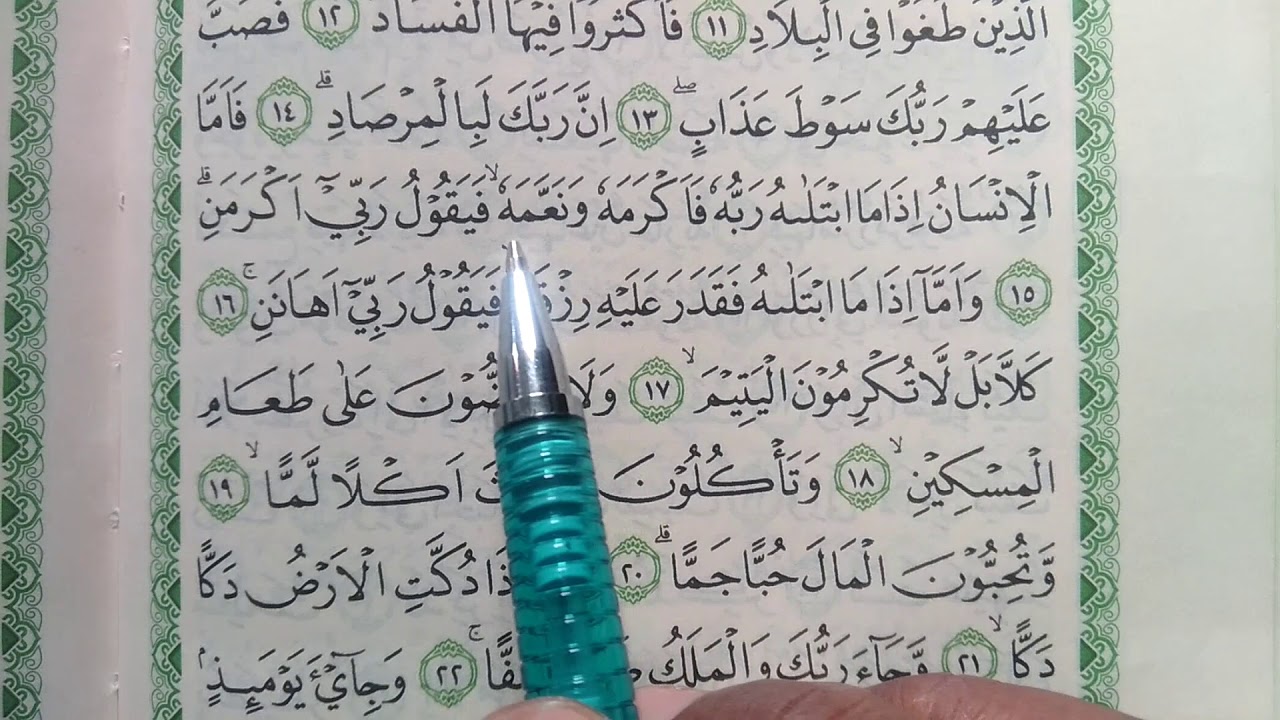 الَّذِيْنَ طَغَوْا فِى الْبِلَادِ ۝١١ فَاَكْثَرُوْا فِيْهَا الْفَسَادَ ۝١٢ فَصَبَّ
عَلَيْهِمْ رَبُّكَ سَوْطَ عَذَابٍ ۖ ۝١٣ اِنَّ رَبَّكَ لَبِالْمِرْصَادِ ۗ ۝١٤ فَاَمَّا
الْاِنْسَانُ اِذَا مَا ابْتَلٰىهُ رَبُّهٗ فَاَكْرَمَهٗ وَنَعَّمَهٗ ۙ فَيَقُوْلُ رَبِّيْٓ اَكْرَمَنِ ۗ
۝١٥ وَاَمَّآ اِذَا مَا ابْتَلٰىهُ فَقَدَرَ عَلَيْهِ فَيَقُوْلُ رَبِّيْٓ اَهَانَنِ ۚ ۝١٦
كَلَّا بَلْ لَّا تُكْرِمُوْنَ الْيَتِيْمَ ۙ ۝١٧ عَلٰى طَعَامِ
الْمِسْكِيْنِ ۙ ۝١٨ وَتَأْكُلُوْنَ اَكْلًا لَّمًّا ۙ ۝١٩
وَّتُحِبُّوْنَ الْمَالَ حُبًّا جَمًّا ۗ ۝٢٠ دُكَّتِ الْاَرْضُ دَكًّا
دَكًّا ۙ ۝٢١ وَّجَآءَ رَبُّكَ وَالْمَلَكُ ۚ ۝٢٢ وَجِايْۤءَ يَوْمَىِٕذٍ ۢ